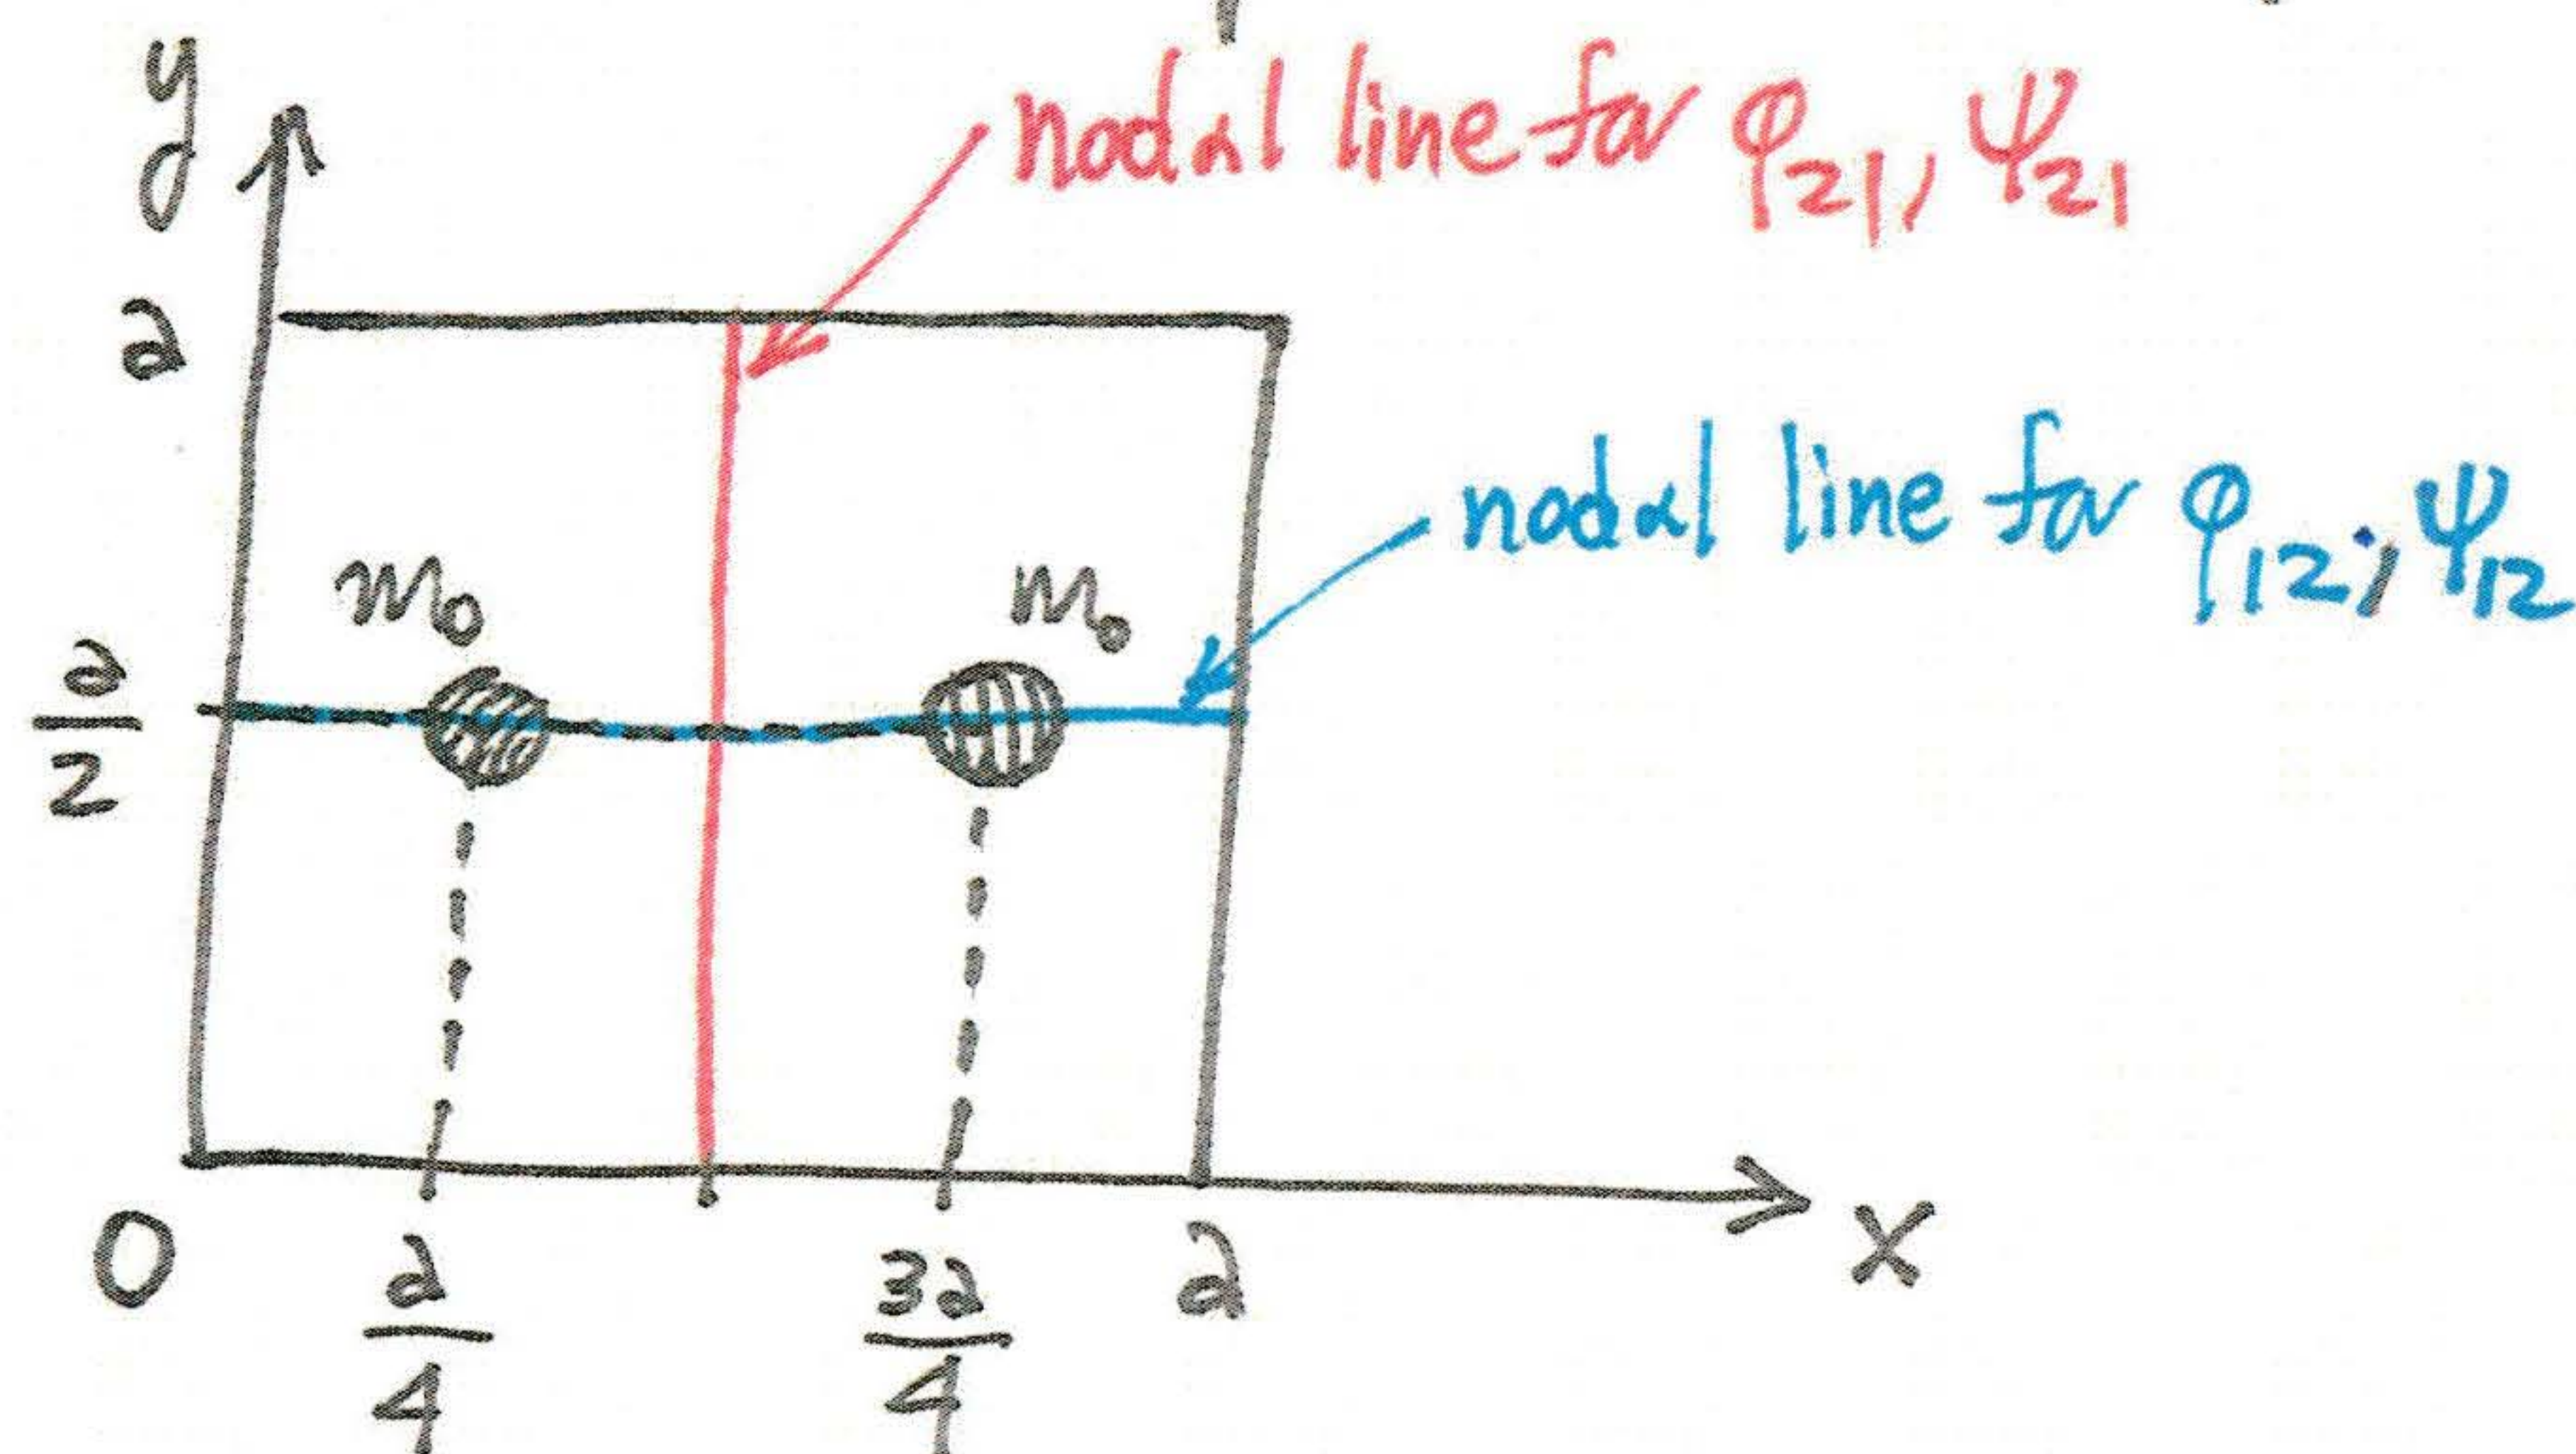 y
nodal line for φ₂₁, ψ₂₁
a
nodal line for φ₁₂, ψ₁₂
m₀ m₀
a/2
0 a/4 3a/4 a x